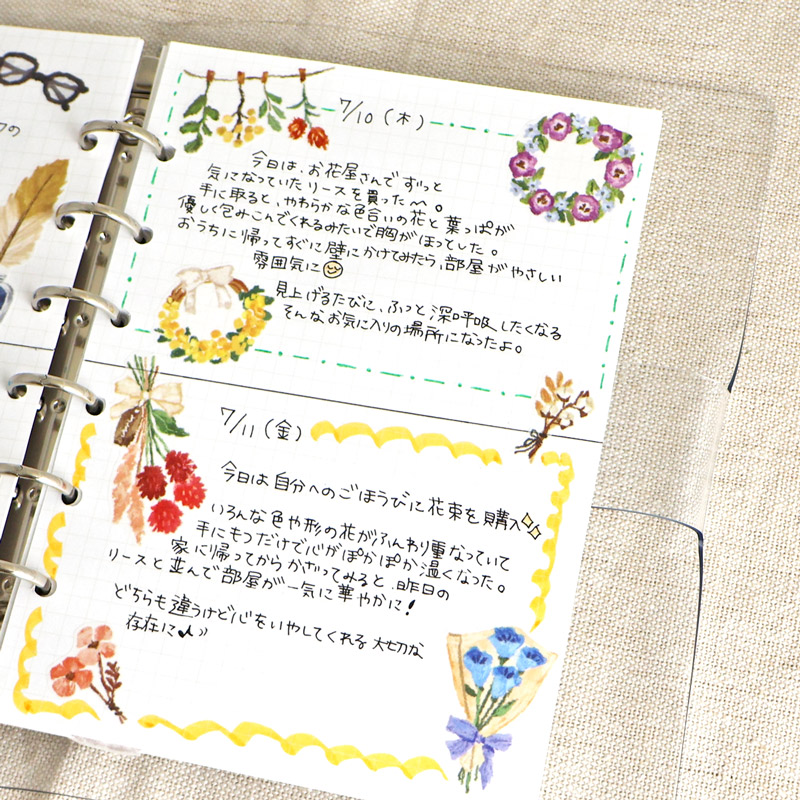 クの
7/10(木)
今日は、お花屋さんでずっと
気になっていたリースを買った〜。
手に取ると、やわらかな色合いの花と葉っぱが
優しく包みこんでくれるみたいで胸がほっとした。
おうちに帰ってすぐに壁にかけてみたら、部屋がやさしい
雰囲気に
見上げるたびに、ふっと深呼吸したくなる
そんなお気に入りの場所になったよ。
7/11(金)
今日は自分へのごほうびに花束を購入
いろんな色や形の花がふんわり重なっていて
手にもつだけで心がぽかぽか温くなった。
家に帰ってからかざってみると、昨日の
リースと並んで部屋が一気に華やかに!
どちらも違うけど心をいやしてくれる大切な
存在に♪